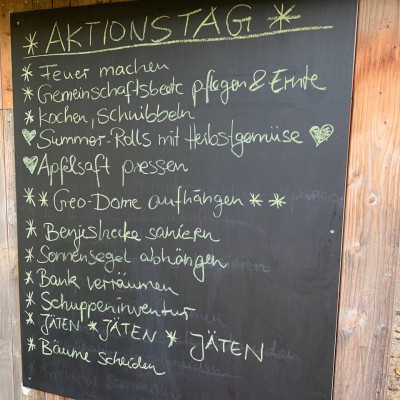 * AKTIONSTAG *
* Feuer machen
* Gemeinschaftsbeete pflegen & Ernte
* Kochen, Schnibbeln
♥ Summer-Rolls mit Herbstgemüse ♥
♥ Apfelsaft pressen
* * Geo-Dome aufhängen * *
* Benjeshecke sanieren
* Sonnensegel abhängen
* Bank verräumen
* Schuppeninventur
* JÄTEN * JÄTEN * JÄTEN
* Bäume scheiden